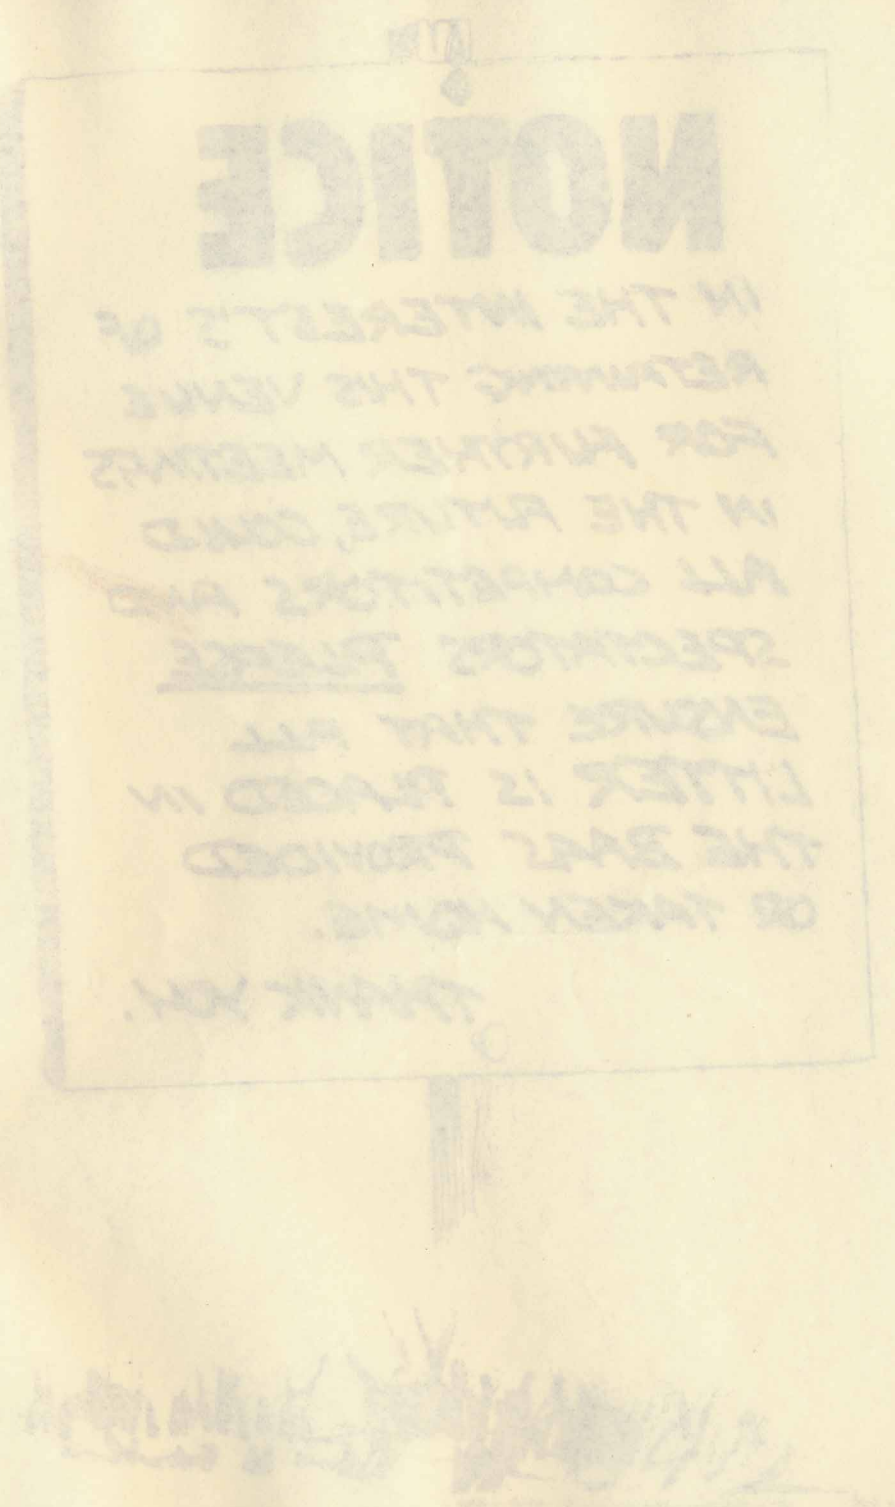 NOTICE
IN THE INTEREST'S OF
RETAINING THIS VENUE
FOR FURTHER MEETINGS
IN THE FUTURE, COULD
ALL COMPETITORS AND
SPECTATORS PLEASE
ENSURE THAT ALL
LITTER IS PLACED IN
THE BAGS PROVIDED
OR TAKEN HOME.
THANK YOU.